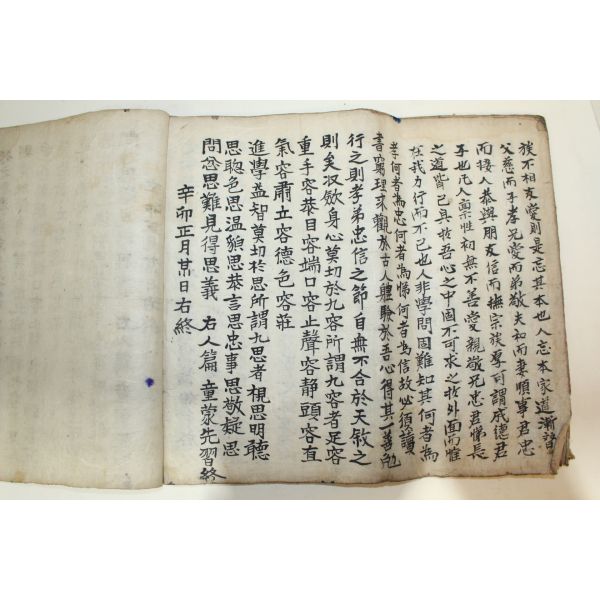 族不相友愛則是忘其本也人忘本家道漸替
父慈而子孝兄愛而弟敬夫和而妻順事君忠
而接人恭與朋友信而撫宗族厚可謂成德君
子也凡人稟性初無不善愛親敬兄忠君悌長
之道皆已具於吾心之中固不可求之於外面而惟
在我力行而不已也人非學問固難知其何者為
孝何者為忠何者為悌何者為信故必須讀
書窮理求觀於古人體驗於吾心得其一善勉
行之則孝弟忠信之節自無不合於天敘之
則矣收斂身心莫切於九容所謂九容者足容
重手容恭目容端口容止聲容静頭容直
氣容肅立容德色容莊
進學益智莫切於思所謂九思者視思明聽
思聰色思温貌思恭言思忠事思敬疑思
問忿思難見得思義 右人篇 童蒙先習終
辛卯正月廿日右終